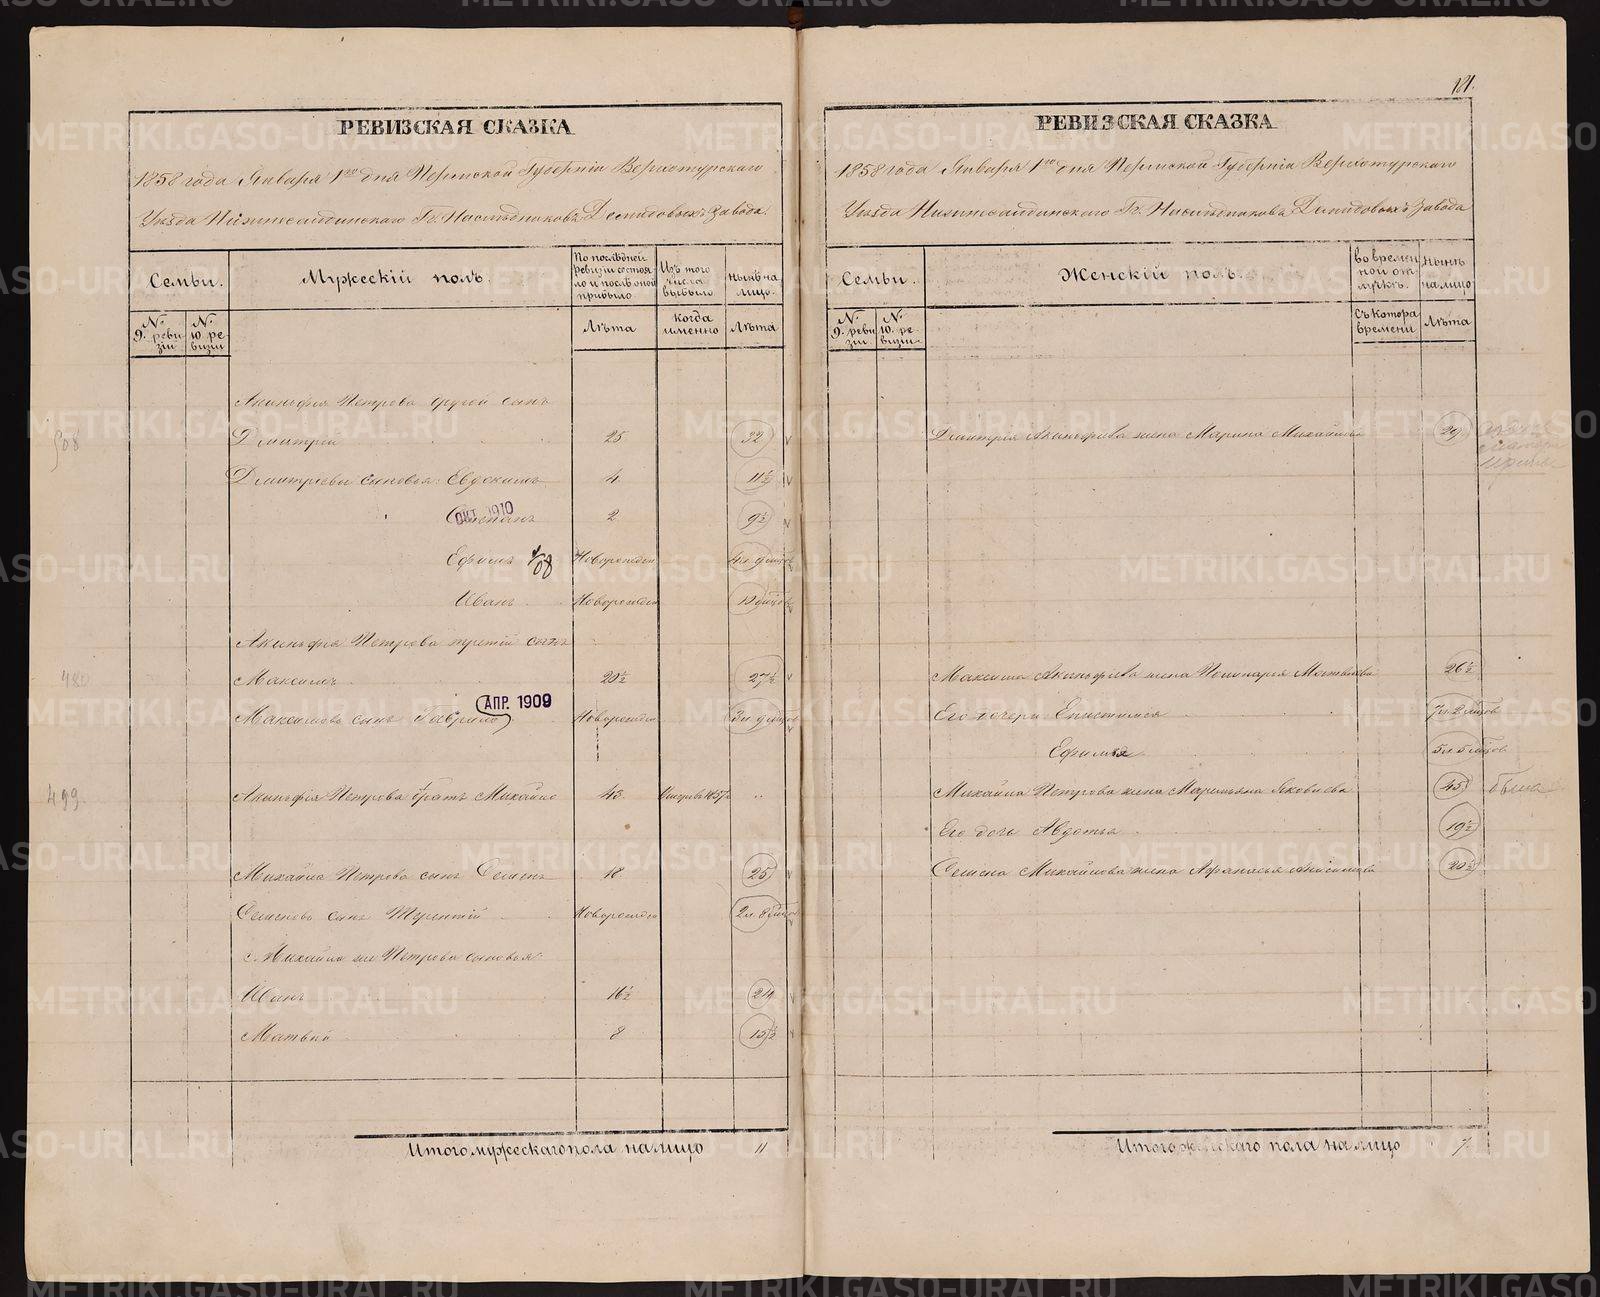 РЕВИЗСКАЯ СКАЗКА
1858 года Января 1го дня Пермской Губерніи Верхотурскаго
Уѣзда Нижнесалдинскаго Гг. Наслѣдниковъ Демидовыхъ завода.
Семьи.
Мужескій полъ.
По послѣдней ревизіи состояло и послѣ оной прибыло
Изъ того числа выбыло
нынѣ на лицо.
№ 9. ревизіи
№ 10. ревизіи
Лѣта
когда именно
Лѣта
Акинфія Петрова другой сынъ
508
Дмитрій 25 32
Дмитріевы сыновья: Евдокимъ 4 11½
Степанъ 2 9½
ОКТ. 1910
Ефимъ 08 Новорожден 4л. 9 мцов
Иванъ Новорожден 10 мцов
Акинфія Петрова третій сынъ
480
Максимъ 20½ 27½
АПР. 1909
Максимовъ сынъ Гаврило Новорожден 3л 9 мцов
499
Акинфія Петрова братъ Михайло 43 1857
Михайла Петрова сынъ Семенъ 18 25
Семеновъ сынъ Терентій Новорожден 2л. 8 мцов
Михайла же Петрова сыновья:
Иванъ 16½ 24
Матвѣй 8 15½
Итого мужескаго пола на лицо 11
181.
РЕВИЗСКАЯ СКАЗКА
1858 года Января 1го дня Пермской Губерніи Верхотурскаго
Уѣзда Нижнесалдинскаго Гг. Наслѣдниковъ Демидовыхъ завода
Семьи.
Женскій полъ.
во временной отлучкѣ.
нынѣ на лицо
№ 9. ревизіи
№ 10. ревизіи
Съ котора времени
Лѣта
Дмитрія Акинфіева жена Марина Михайлова 29
Максима Акинфіева жена Матвѣева 26½
Его дочери: Епистимея 7л. 2 мцов
Ефимья 5л. 5 мцов
Михайла Петрова жена Маремьяна Яковлева 45
Его дочь Авдотья 19½
Семена Михайлова жена Афанасья Анисимова 20½
Итого женскаго пола на лицо 7.
METRIKI.GASO-URAL.RU